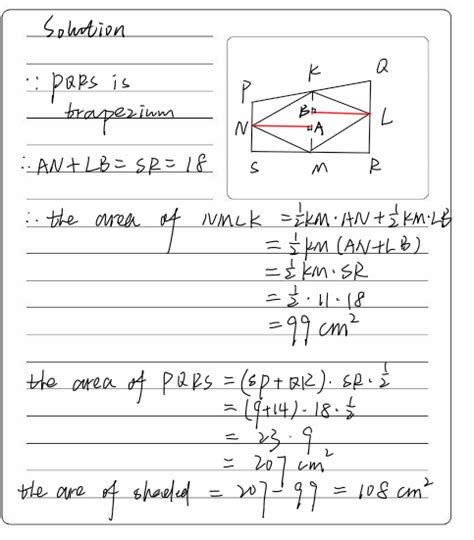 Solution
∵ PQRS is
trapezium
∴ AN+LB = SR = 18
P
K
Q
N
B
A
L
S
M
R
∴ the area of NMLK = 1/2 KM·AN + 1/2 KM·LB
= 1/2 KM (AN+LB)
= 1/2 KM·SR
= 1/2 · 11 · 18
= 99 cm²
the area of PQRS = (SP+QR)·SR·1/2
= (9+14)·18·1/2
= 23·9
= 207 cm²
the are of shaded = 207 - 99 = 108 cm²